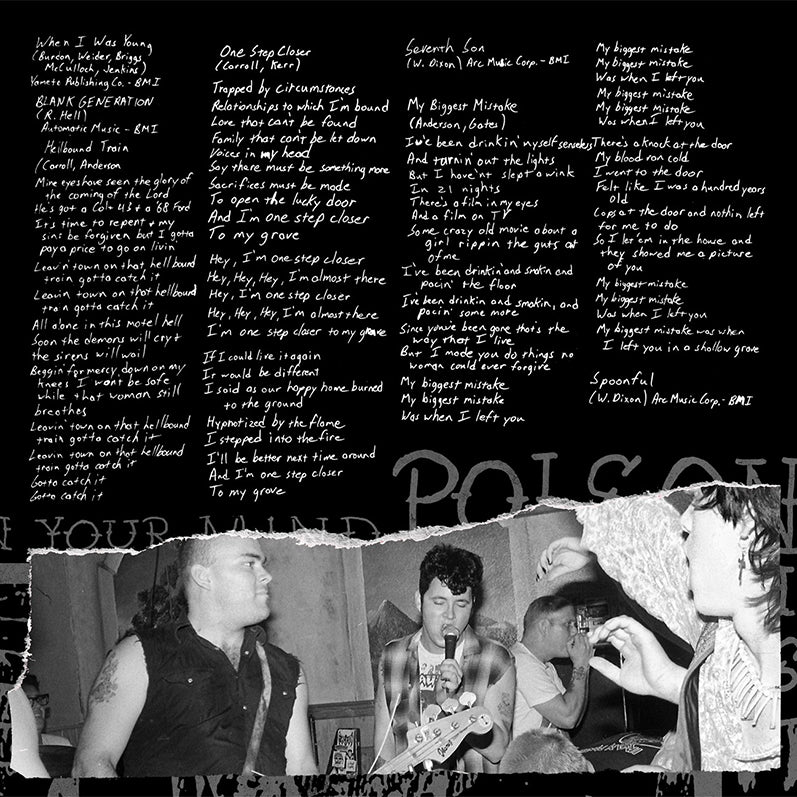 When I Was Young
(Burdon, Weider, Briggs,
McCulloch, Jenkins)
Yamete Publishing Co. - BMI
BLANK GENERATION
(R. Hell)
Automatic Music - BMI
Hellbound Train
(Carroll, Anderson
Mine eyes have seen the glory of
the coming of the Lord
He's got a Colt 43 + a '68 Ford
It's time to repent + my
sins be forgiven but I gotta
pay a price to go on livin'
Leavin' town on that hell bound
train gotta catch it
Leavin town on that hellbound
train gotta catch it
All alone in this motel hell
Soon the demons will cry +
the sirens will wail
Beggin' for mercy down on my
knees I wont be safe
while that woman still
breathes
Leavin' town on that hellbound
train gotta catch it
Leavin town on that hellbound
train gotta catch it
Gotta catch it
Gotta catch it
One Step Closer
(Carroll, Kerr)
Trapped by circumstances
Relationships to which I'm bound
Love that can't be found
Family that can't be let down
Voices in my head
Say there must be something more
Sacrifices must be made
To open the lucky door
And I'm one step closer
To my grave
Hey, I'm one step closer
Hey, Hey, Hey, I'm almost there
Hey, I'm one step closer
Hey, Hey, Hey, I'm almost there
I'm one step closer to my grave
If I could live it again
It would be different
I said as our happy home burned
to the ground
Hypnotized by the flame
I stepped into the fire
I'll be better next time around
And I'm one step closer
To my grave
Seventh Son
(W. Dixon) Arc Music Corp. - BMI
My Biggest Mistake
(Anderson, Gates)
I've been drinkin' myself senseless
And turnin' out the lights
But I have'nt slept a wink
In 21 nights
There's a film in my eyes
And a film on TV
Some crazy old movie about a
girl rippin the guts out
of me
I've been drinkin' and smokin and
pacin' the floor
I've been drinkin and smokin, and
pacin' some more
Since you've been gone that's the
way that I live
But I made you do things no
woman could ever forgive
My biggest mistake
My biggest mistake
Was when I left you
My biggest mistake
My biggest mistake
Was when I left you
My biggest mistake
My biggest mistake
Was when I left you
There's a knock at the door
My blood ran cold
I went to the door
Felt like I was a hundred years
old
Cops at the door and nothin left
for me to do
So I let'em in the house and
they showed me a picture
of you
My biggest mistake
My biggest mistake
Was when I left you
My biggest mistake was when
I left you in a shallow grave
Spoonful
(W. Dixon) Arc Music Corp. - BMI
POISON
IN YOUR MIND